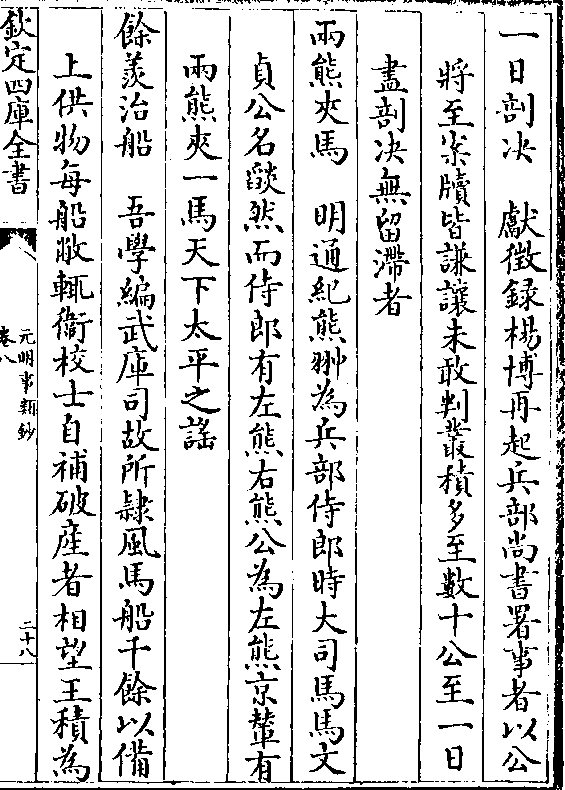 一日剖决　獻徴録楊博再起兵部尚書署事者以公
將至案牘皆謙讓未敢判叢積多至數十公至一日
盡剖决無留滯者
兩熊夾馬　明通紀熊翀為兵部侍郎時大司馬馬文
貞公名燄然而侍郎有左熊右熊公為左熊京輦有
兩熊夾一馬天下太平之謡
餘羨治船　吾學編武庫司故所隷風馬船千餘以備
上供物每船敝輒衞校士自補破産者相望王積為
欽定四庫全書
元明事類鈔
卷八
二十八